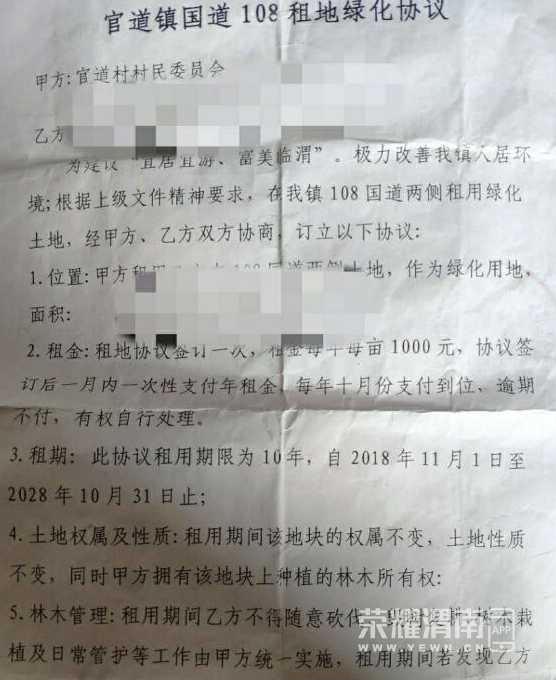 官道镇国道 108 租地绿化协议
甲方:官道村村民委员会
乙方
为建设“宜居宜游、富美临渭”。极力改善我镇人居环
境;根据上级文件精神要求，在我镇 108 国道两侧租用绿化
土地，经甲方、乙方双方协商，订立以下协议:
1.位置:甲方租用 108 国道两侧土地，作为绿化用地，
面积:
2.租金:租地协议签订一次，租金每年每亩 1000 元，协议签
订后一月内一次性支付年租金，每年十月份支付到位，逾期
不付，有权自行处理。
3.租期: 此协议租用期限为 10 年，自 2018 年 11 月 1 日至
2028 年 10 月 31 日止;
4.土地权属及性质:租用期间该地块的权属不变，土地性质
不变，同时甲方拥有该地块上种植的林木所有权:
5.林木管理:租用期间乙方不得随意砍伐、林木栽
植及日常管护等工作由甲方统一实施，租用期间若发现乙方
荣耀渭南 APP
WWW.YEWN.CN